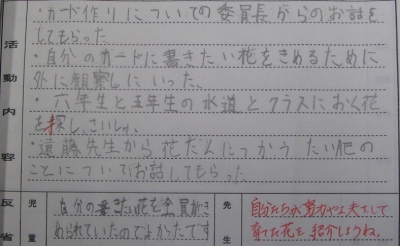 活動内容
・カード作りについての委員長からのお話を
してもらった
・自分のカードに書きたい花をきめるために
外に観察しにいった。
・六年生と五年生の水道とクラスにおく花
を探し、さいしゅ。
・遠藤先生から花だんにつかうたい肥の
ことについてお話してもらった。
反省
児童
自分の書きたい花を全員がき
められていたのでよかったです
先生
自分たちが努力や工夫をして
育てた花を紹介しようね。